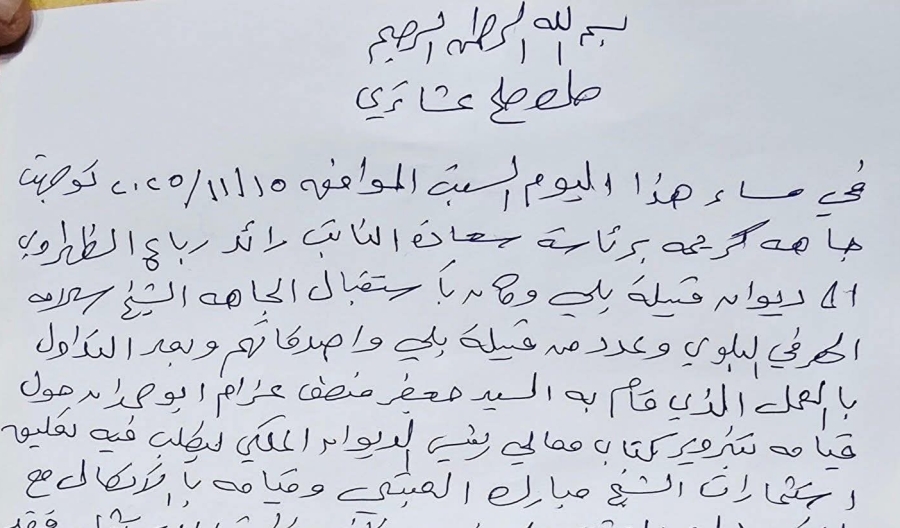 بسم الله الرحمن الرحيم
صك صلح عشائري
في مساء هذا اليوم السبت الموافق ٢٠٢٥/١١/١٥ توجهت
جاهه كريمه برئاسة سعادة النائب رائد رباع الظهراوي
الى ديوان قبيلة بلي وكان بأستقبال الجاهه الشيخ سلامه
البلوي وعدد من قبيلة بلي واصدقائهم وبعد التداول
بالعمل الذي قام به السيد جعفر منصف عزام ابو حمدان حول
قيامه بتزوير كتاب معالي رئيس الديوان الملكي ليطلب فيه
استثمارات الشيخ مبارك وقيامه بالاتصال مع